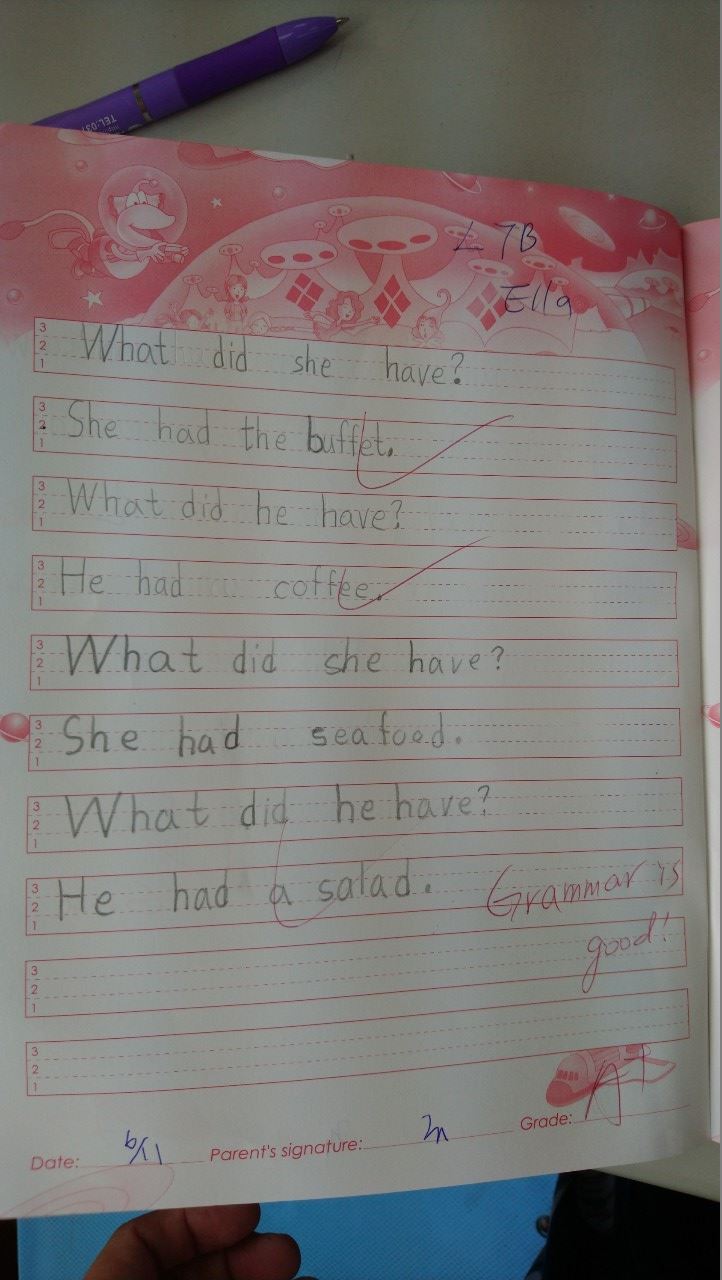 TEL:037
L7B
Ella
3
2
1
What did she have?
3
2
1
She had the buffet.
3
2
1
What did he have?
3
2
1
He had coffee.
3
2
1
What did she have?
3
2
1
She had seafood.
3
2
1
What did he have?
3
2
1
He had a salad.
Grammar is
good!
3
2
1
3
2
1
A+
Date: 6/11 Parent's signature: Grade: